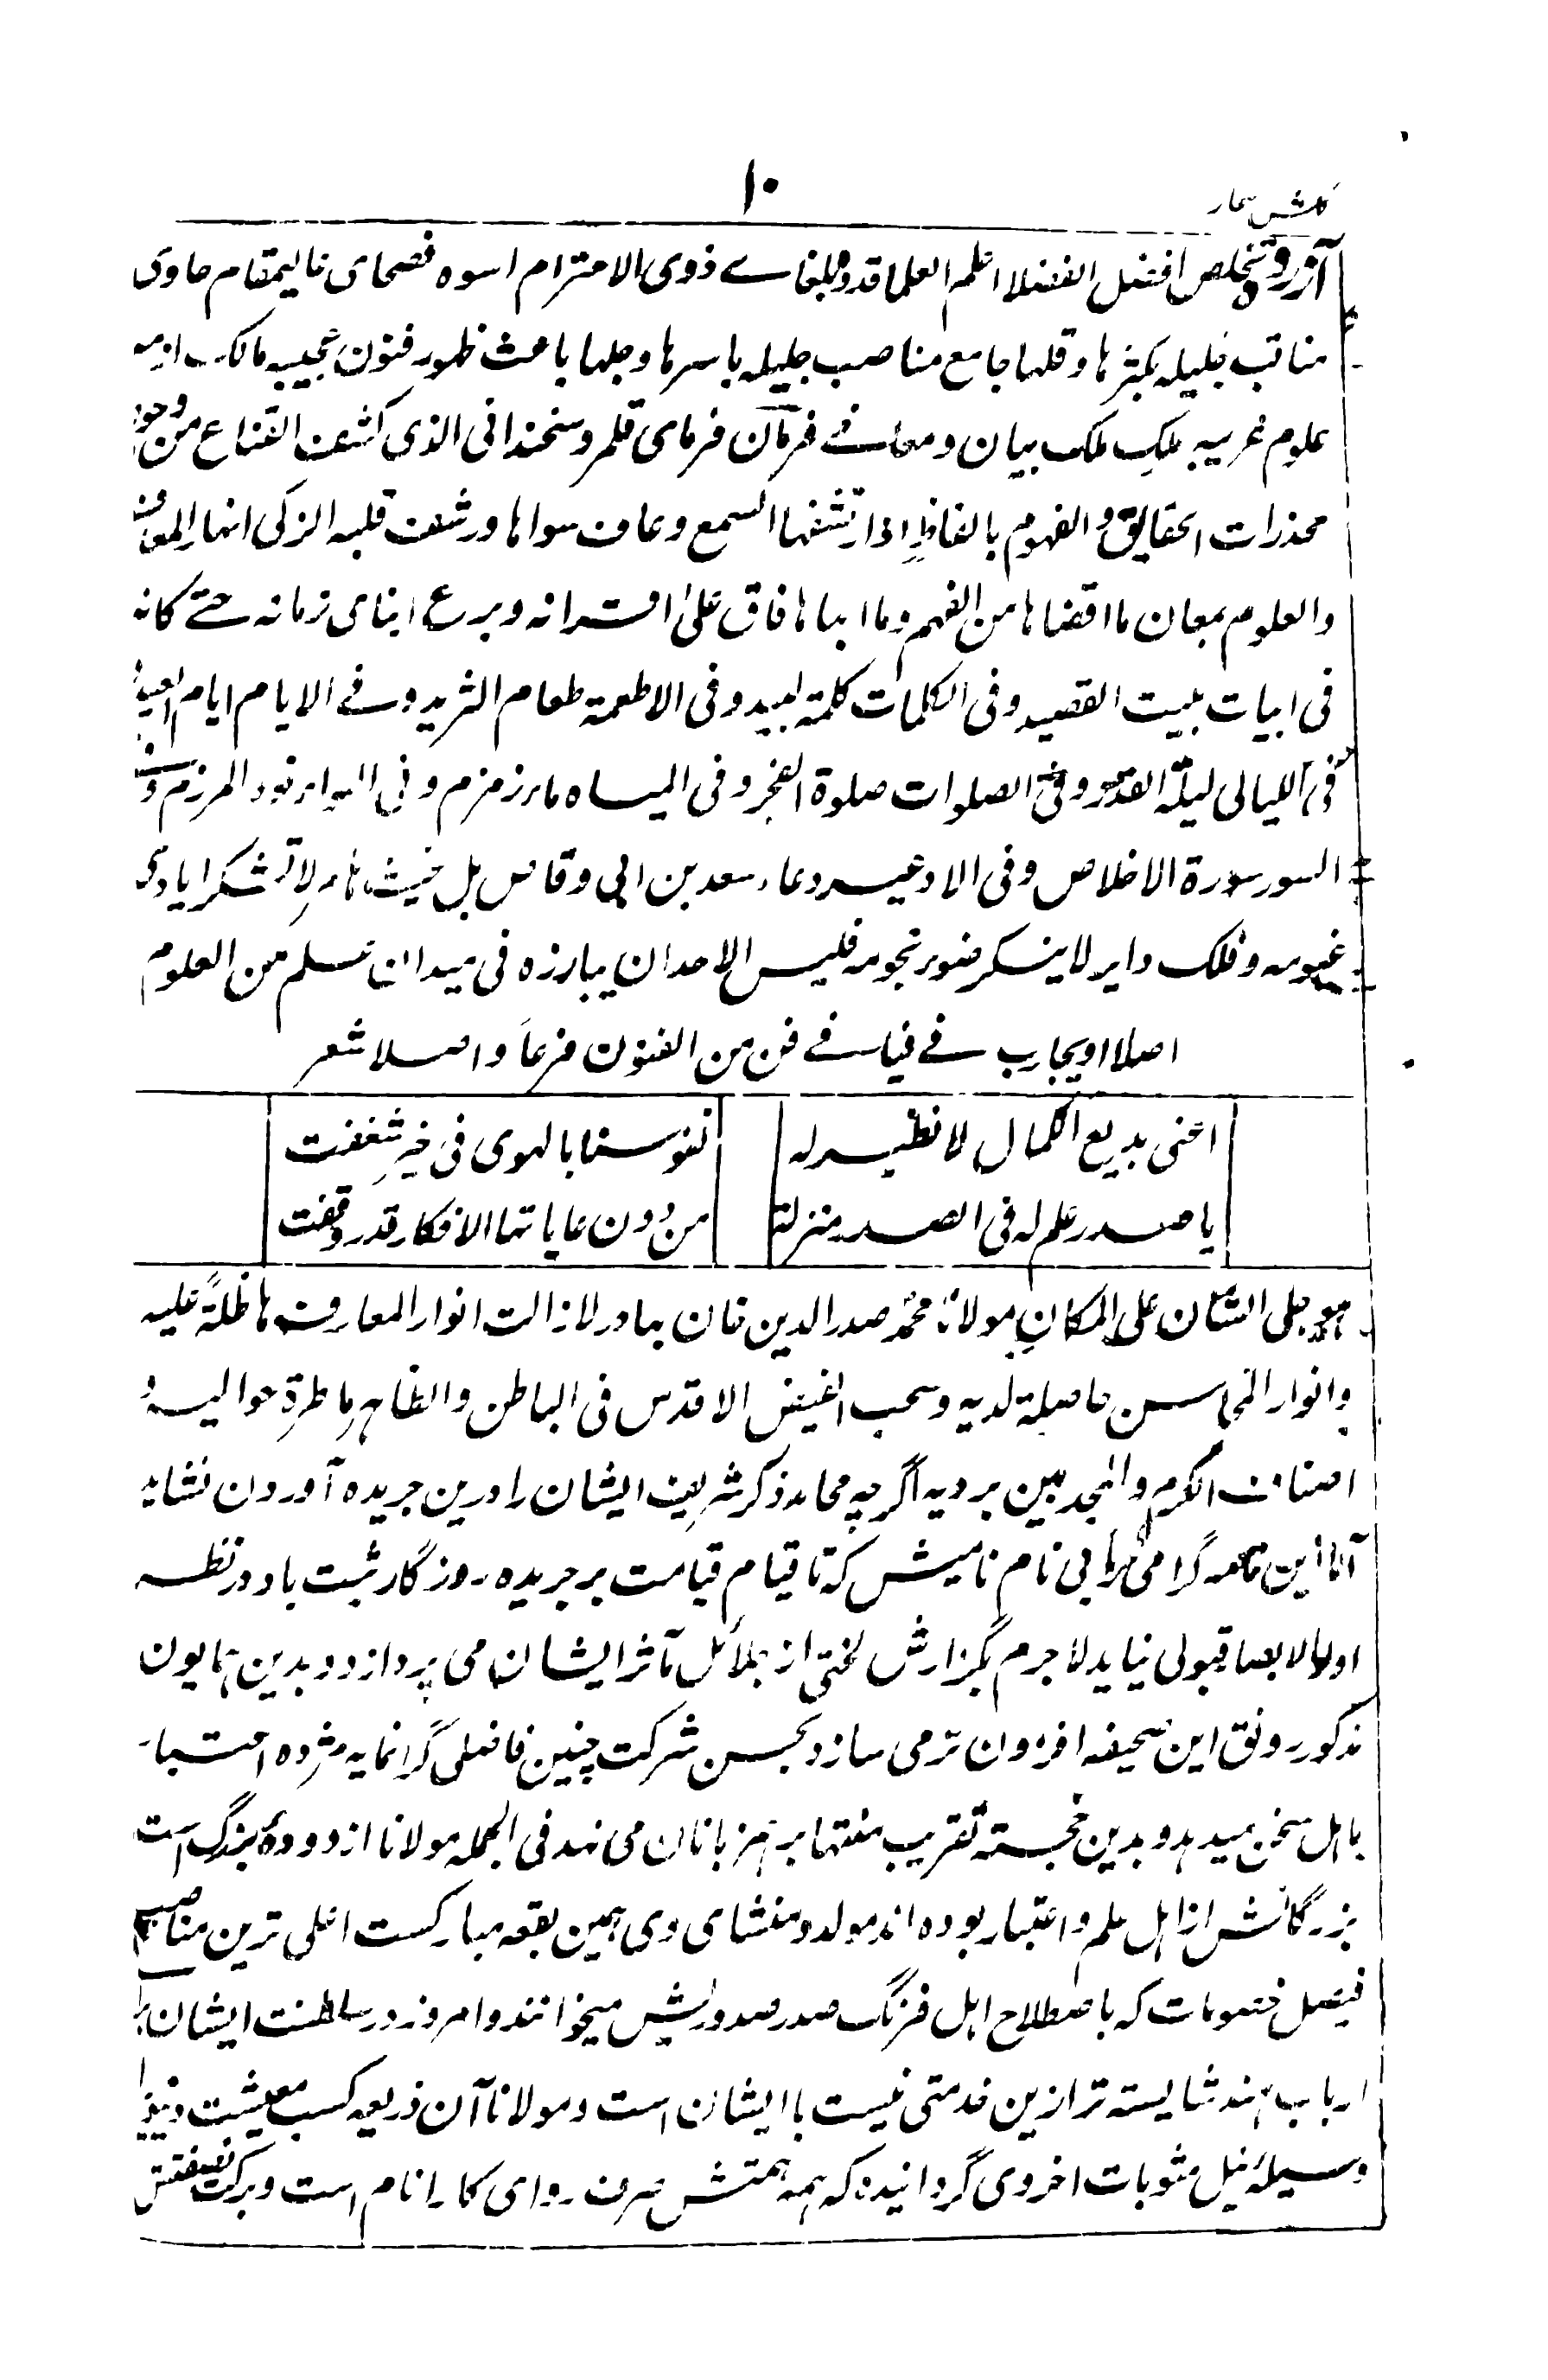 ۱۰
گلشن بیخار
آزرده تخلص افضل الفضلا اعلم العلما قدوه بلغاے ذوی الاحترام اسوه فصحای عالیمقام حاوی
مناقب جلیله بکثرها وقلها جامع مناصب جلیله باسرها وجلها باعث ظهور فنون عجیبه مالک ازمه
علوم غریبه ملک ملک بیان ومعانے فرمان فرمای قلمرو سخندانی الذی کشف القناع من وجوه
مخدرات الحقایق والفهوم بالفاظٍ اذا رتشفها السمع وعاف سواها ورشف قلبه الزکی انهار المعارف
والعلوم بمعان ما اقضاها من الفهم وما ابها ها فاق علی اقرانه وبرع ابنای زمانه حتے کانه
فی ابیات بیت القصید وفی الکلمات کلمة لبید وفی الاطعمة طعام الثرید وفے الایام ایام العید
وفی اللیالی لیلة القدر وفی الصلوات صلوة الفجر وفی المیاه ماء زمزم وفی المرزم وفے
السور سورة الاخلاص وفی الادعیه دعاء سعد بن ابی وقاص بل غیث لا تشکر ایادی
غیومه وفلک دایر لا ینکر ضوء نجومه فلیس لاحد ان یبارزه فی میدان علم من العلوم
اصلا او یحارب فے فیافے فن من الفنون فرعاً واصلا شعر
اعنی بدیع الکمال لا نظیر له
نفوسنا بالهوی فی خیر شغفت
یا صدر علم له فی الصدر منزلة
من دون غایاتها الافکار قد وقفت
هو جلی الشان علی المکان مولانا محمد صدر الدین خان بهادر لا زالت انوار المعارف هاطلةً علیه
وانوار المحاسن حاصلة لدیه وسحب الفیض الاقدس فی الباطن والظاهر ماطرة حوالیه و
اصناف الکرم والمجد بین بردیه اگرچه محامد ذکر شریف ایشان را درین جریده آوردن نشاید
اما این نامه گرامی را بی نام نامیش که تا قیام قیامت بر جریده روزگار ثبت باد در نظر
اولوالابصار قبولی نیاید لا جرم بگزارش لختی از جلائل مآثر ایشان می پردازد و بدین همایون
مذکور رونق این صحیفه افزون تر می سازد و بحسن شرکت چنین فاضلی گرانمایه مژده اعتبار
باهل سخن میدهد و بدین خجسته تقریب منتها بر همزبانان می نهد فی الجمله مولانا از دودۀ بزرگ است
بزرگانش از اهل علم و اعتبار بوده اند مولد و منشای وی همین بقعه مبارکست اعلی ترین مناصب
فیصل خصومات که باصطلاح اهل فرنگ صدر صدورش میخوانند و امروز در سلطنت ایشان برای
ارباب هند شایسته تر ازین خدمتی نیست با ایشان است و مولانا آن ذریعه کسب معیشت دنیا را
وسیلۀ نیل مثوبات اخروی گردانیده که همه همتش صرف روای کار انام است و برکت